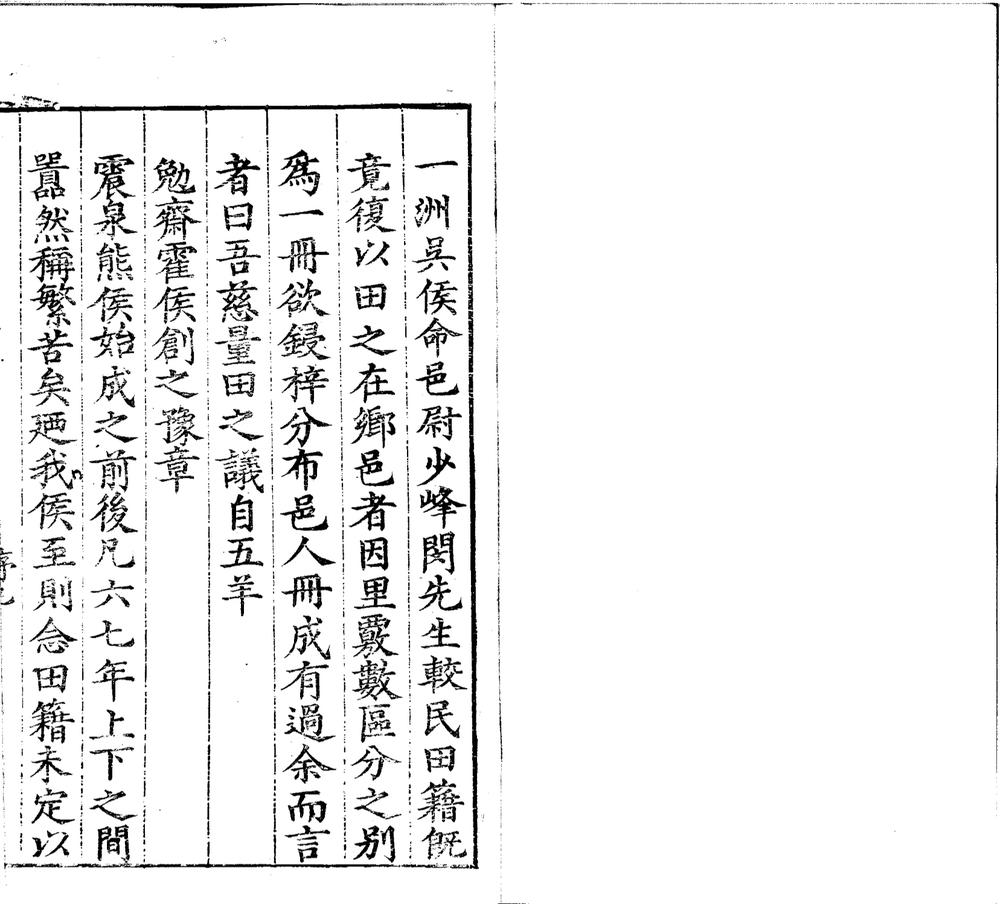 一洲吳侯命邑尉少峰閔先生較民田籍旣
竟復以田之在鄉邑者因里覈數區分之别
爲一冊欲鋟梓分布邑人冊成有過余而言
者曰吾慈量田之議自五羊
勉齋霍侯創之豫章
震泉熊侯始成之前後凡六七年上下之間
囂然稱繁苦矣廼我侯至則念田籍未定以